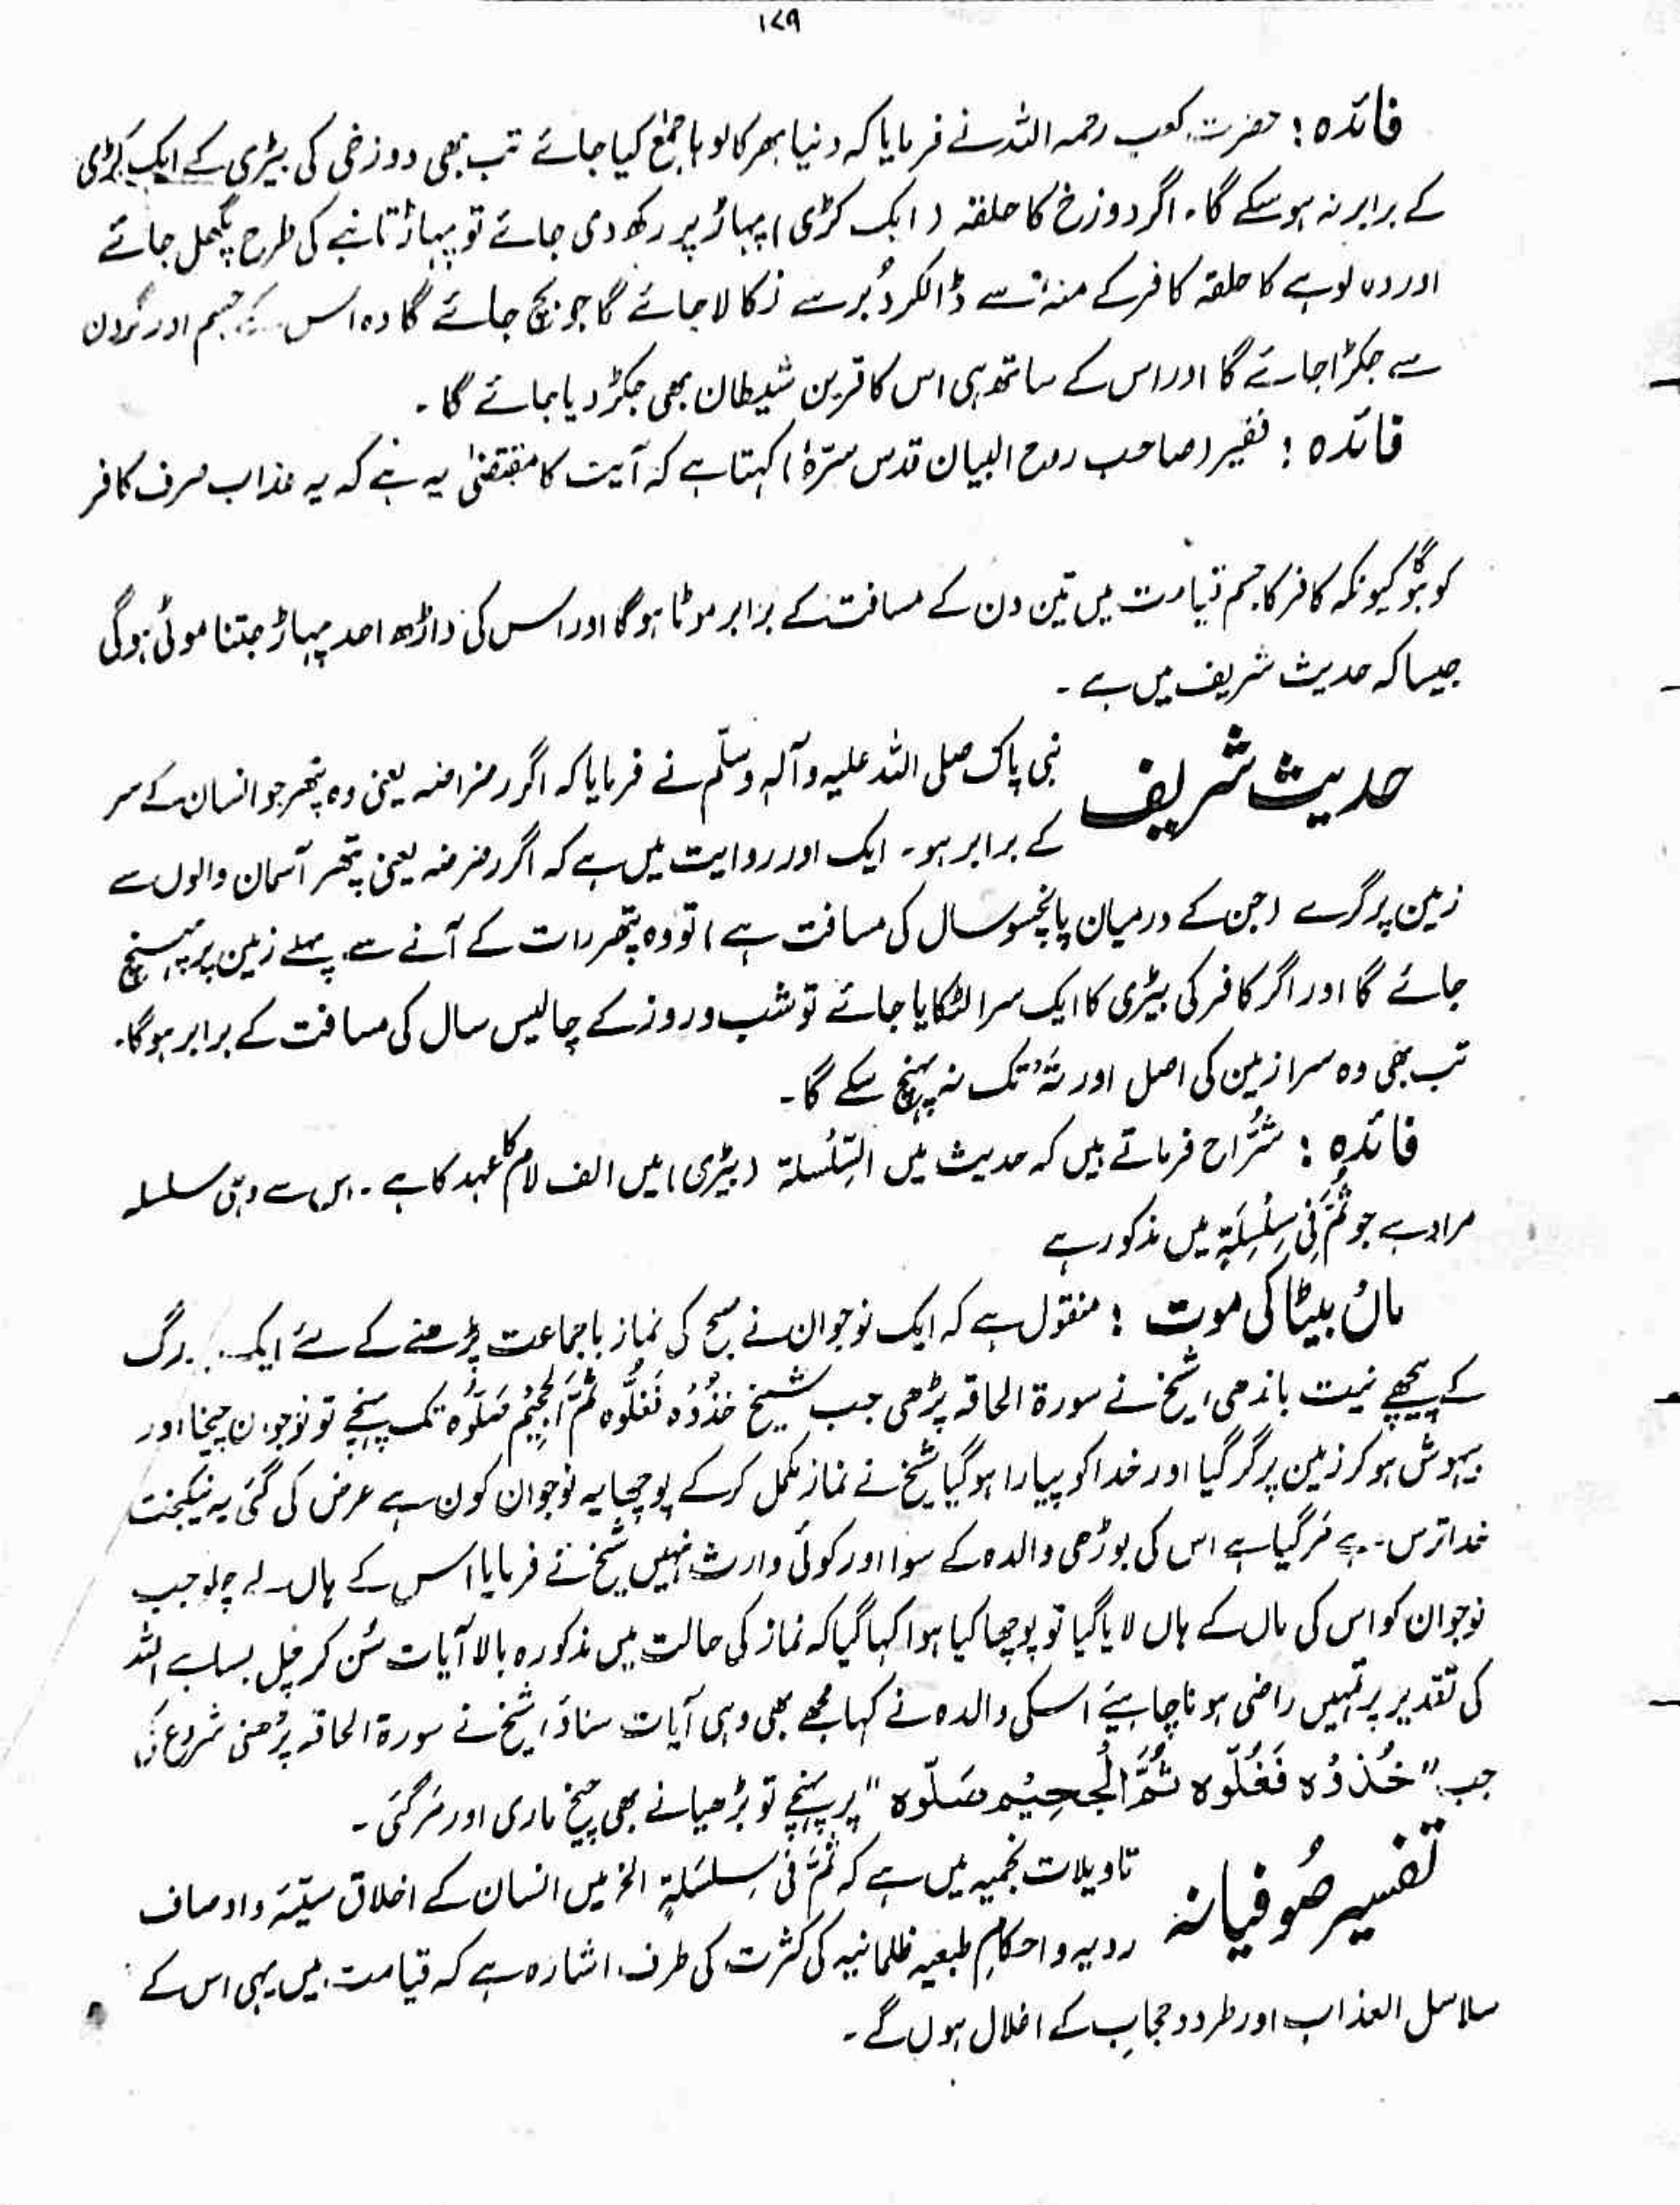 ۱۷۹
فائدہ : حضرت کعب رحمہ اللہ نے فرمایا کہ دنیا بھر کا لوہا جمع کیا جائے تب بھی دوزخی کی بیڑی کے ایک کڑی
کے برابر نہ ہو سکے گا۔ اگر دوزخ کا حلقہ (ایک کڑی) پہاڑ پر رکھ دی جائے تو پہاڑ تانبے کی طرح پگھل جائے
اور وہ لوہے کا حلقہ کافر کے منہ سے ڈالکر دُبر سے نکالا جائے گا جو بچ جائے گا وہ اس کے جسم اور گردن
سے جکڑا جائے گا اور اس کے ساتھ ہی اس کا قرین شیطان بھی جکڑ دیا جائے گا ۔
فائدہ : فقیر (صاحب روح البیان قدس سرہٗ) کہتا ہے کہ آیت کا مقتضیٰ یہ ہے کہ یہ عذاب صرف کافر
کو ہوگا کیونکہ کافر کا جسم قیامت میں تین دن کے مسافت کے برابر موٹا ہو گا اور اس کی داڑھ احد پہاڑ جتنا موٹی ہوگی
جیسا کہ حدیث شریف میں ہے ۔
حدیث شریف نبی پاک صلی اللہ علیہ وآلہٖ وسلّم نے فرمایا کہ اگر رضراضہ یعنی وہ پتھر جو انسان کے سر
کے برابر ہو ۔ ایک اور روایت میں ہے کہ اگر رضرضہ یعنی پتھر آسمان والوں سے
زمین پر گرے (جن کے درمیان پانچسو سال کی مسافت ہے) تو وہ پتھر رات کے آنے سے پہلے زمین پر پہنچ
جائے گا اور اگر کافر کی بیڑی کا ایک سرا لٹکایا جائے تو شب و روز کے چالیس سال کی مسافت کے برابر ہوگا۔
تب بھی وہ سرا زمین کی اصل اور تہ تک نہ پہنچ سکے گا ۔
فائدہ : شُرّاح فرماتے ہیں کہ حدیث میں السِّلْسلۃ (بیڑی) میں الف لام کا عہد کا ہے ۔ اس سے وہی سلسلہ
مراد ہے جو ثُمَّ فِیْ سِلْسِلَۃٍ میں مذکور ہے
ماں بیٹا کی موت : منقول ہے کہ ایک نوجوان نے صبح کی نماز باجماعت پڑھنے کے لئے ایک بزرگ
کے پیچھے نیت باندھی شیخ نے سورۃ الحاقہ پڑھی جب شیخ خُذُوْہُ فَغُلُّوْہُ ثُمَّ الْجَحِیْمَ صَلُّوْہُ تک پہنچے تو نوجوان چیخا اور
بیہوش ہو کر زمین پر گر گیا اور خدا کو پیارا ہو گیا شیخ نے نماز مکمل کر کے پوچھا یہ نوجوان کون ہے عرض کی گئی یہ نیکبخت
خدا ترس ہے مَر گیا ہے اس کی بوڑھی والدہ کے سوا اور کوئی وارث نہیں شیخ نے فرمایا اس کے ہاں لے چلو جب
نوجوان کو اس کی ماں کے ہاں لایا گیا تو پوچھا کیا ہوا کہا گیا کہ نماز کی حالت میں مذکورہ بالا آیات سُن کر چل بسا ہے اللہ
کی تقدیر پر تمہیں راضی ہونا چاہیئے اسکی والدہ نے کہا مجھے بھی وہی آیات سناؤ شیخ نے سورۃ الحاقہ پڑھنی شروع کی
جب "خُذُوْہ فَغُلُّوہ ثُمَّ الْجَحِیْم صَلّوہ" پر پہنچے تو بڑھیا نے بھی چیخ ماری اور مَر گئی ۔
تفسیر صُوفیانہ تاویلات نجمیہ میں ہے کہ ثُمَّ فِیْ سِلسلَۃٍ الخ میں انسان کے اخلاق سیّئہ و اوصاف
ردیہ و احکام طبعیہ ظلمانیہ کی کثرت کی طرف اشارہ ہے کہ قیامت میں یہی اس کے
سلاسل العذاب اور طرد و حجاب کے اغلال ہوں گے ۔